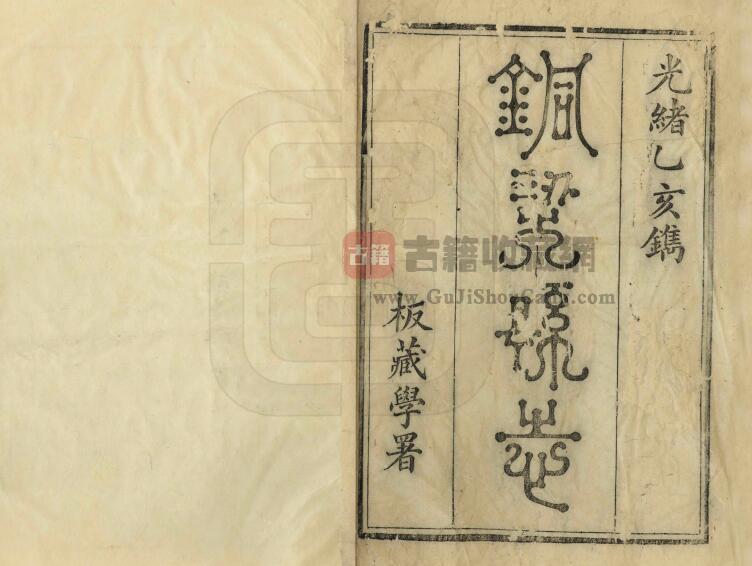 光緒乙亥鐫
銅梁縣志
板藏學署
古籍
古籍收藏網
www.GuJiShouCang.com